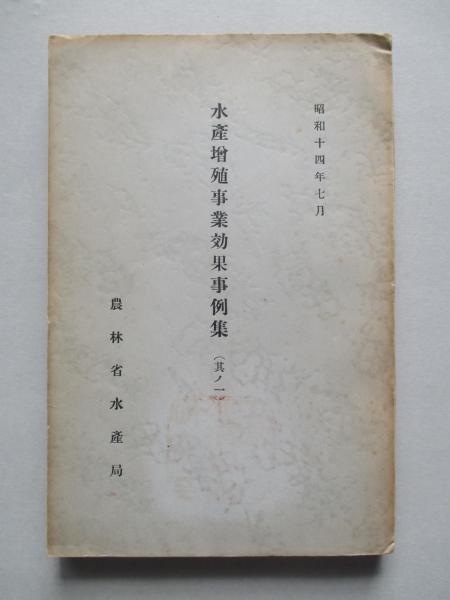 昭和十四年七月
水產增殖事業効果事例集(其ノ一
農林省水產局